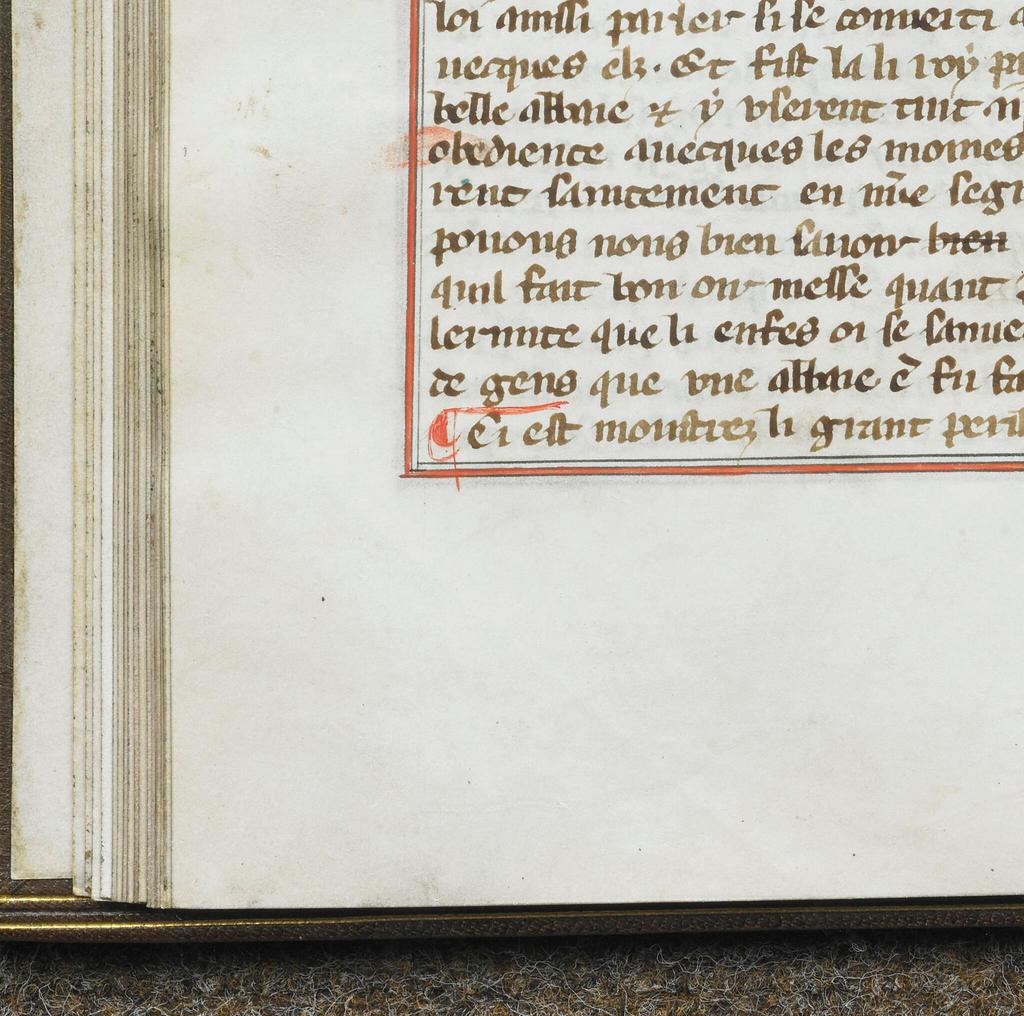 loi aussi parler si se conuerti
uecques elz. Et fist la li roy
belle abbaie ⁊ y vserent tuit
obedience auecques les moines
rent saintement en
pouons nous bien sauoir bien
quil fait bon oir messe quant
lermite que li enfes oi se
de gens que vne abbaie ē fu
¶ Ci est moustrez li grant peril